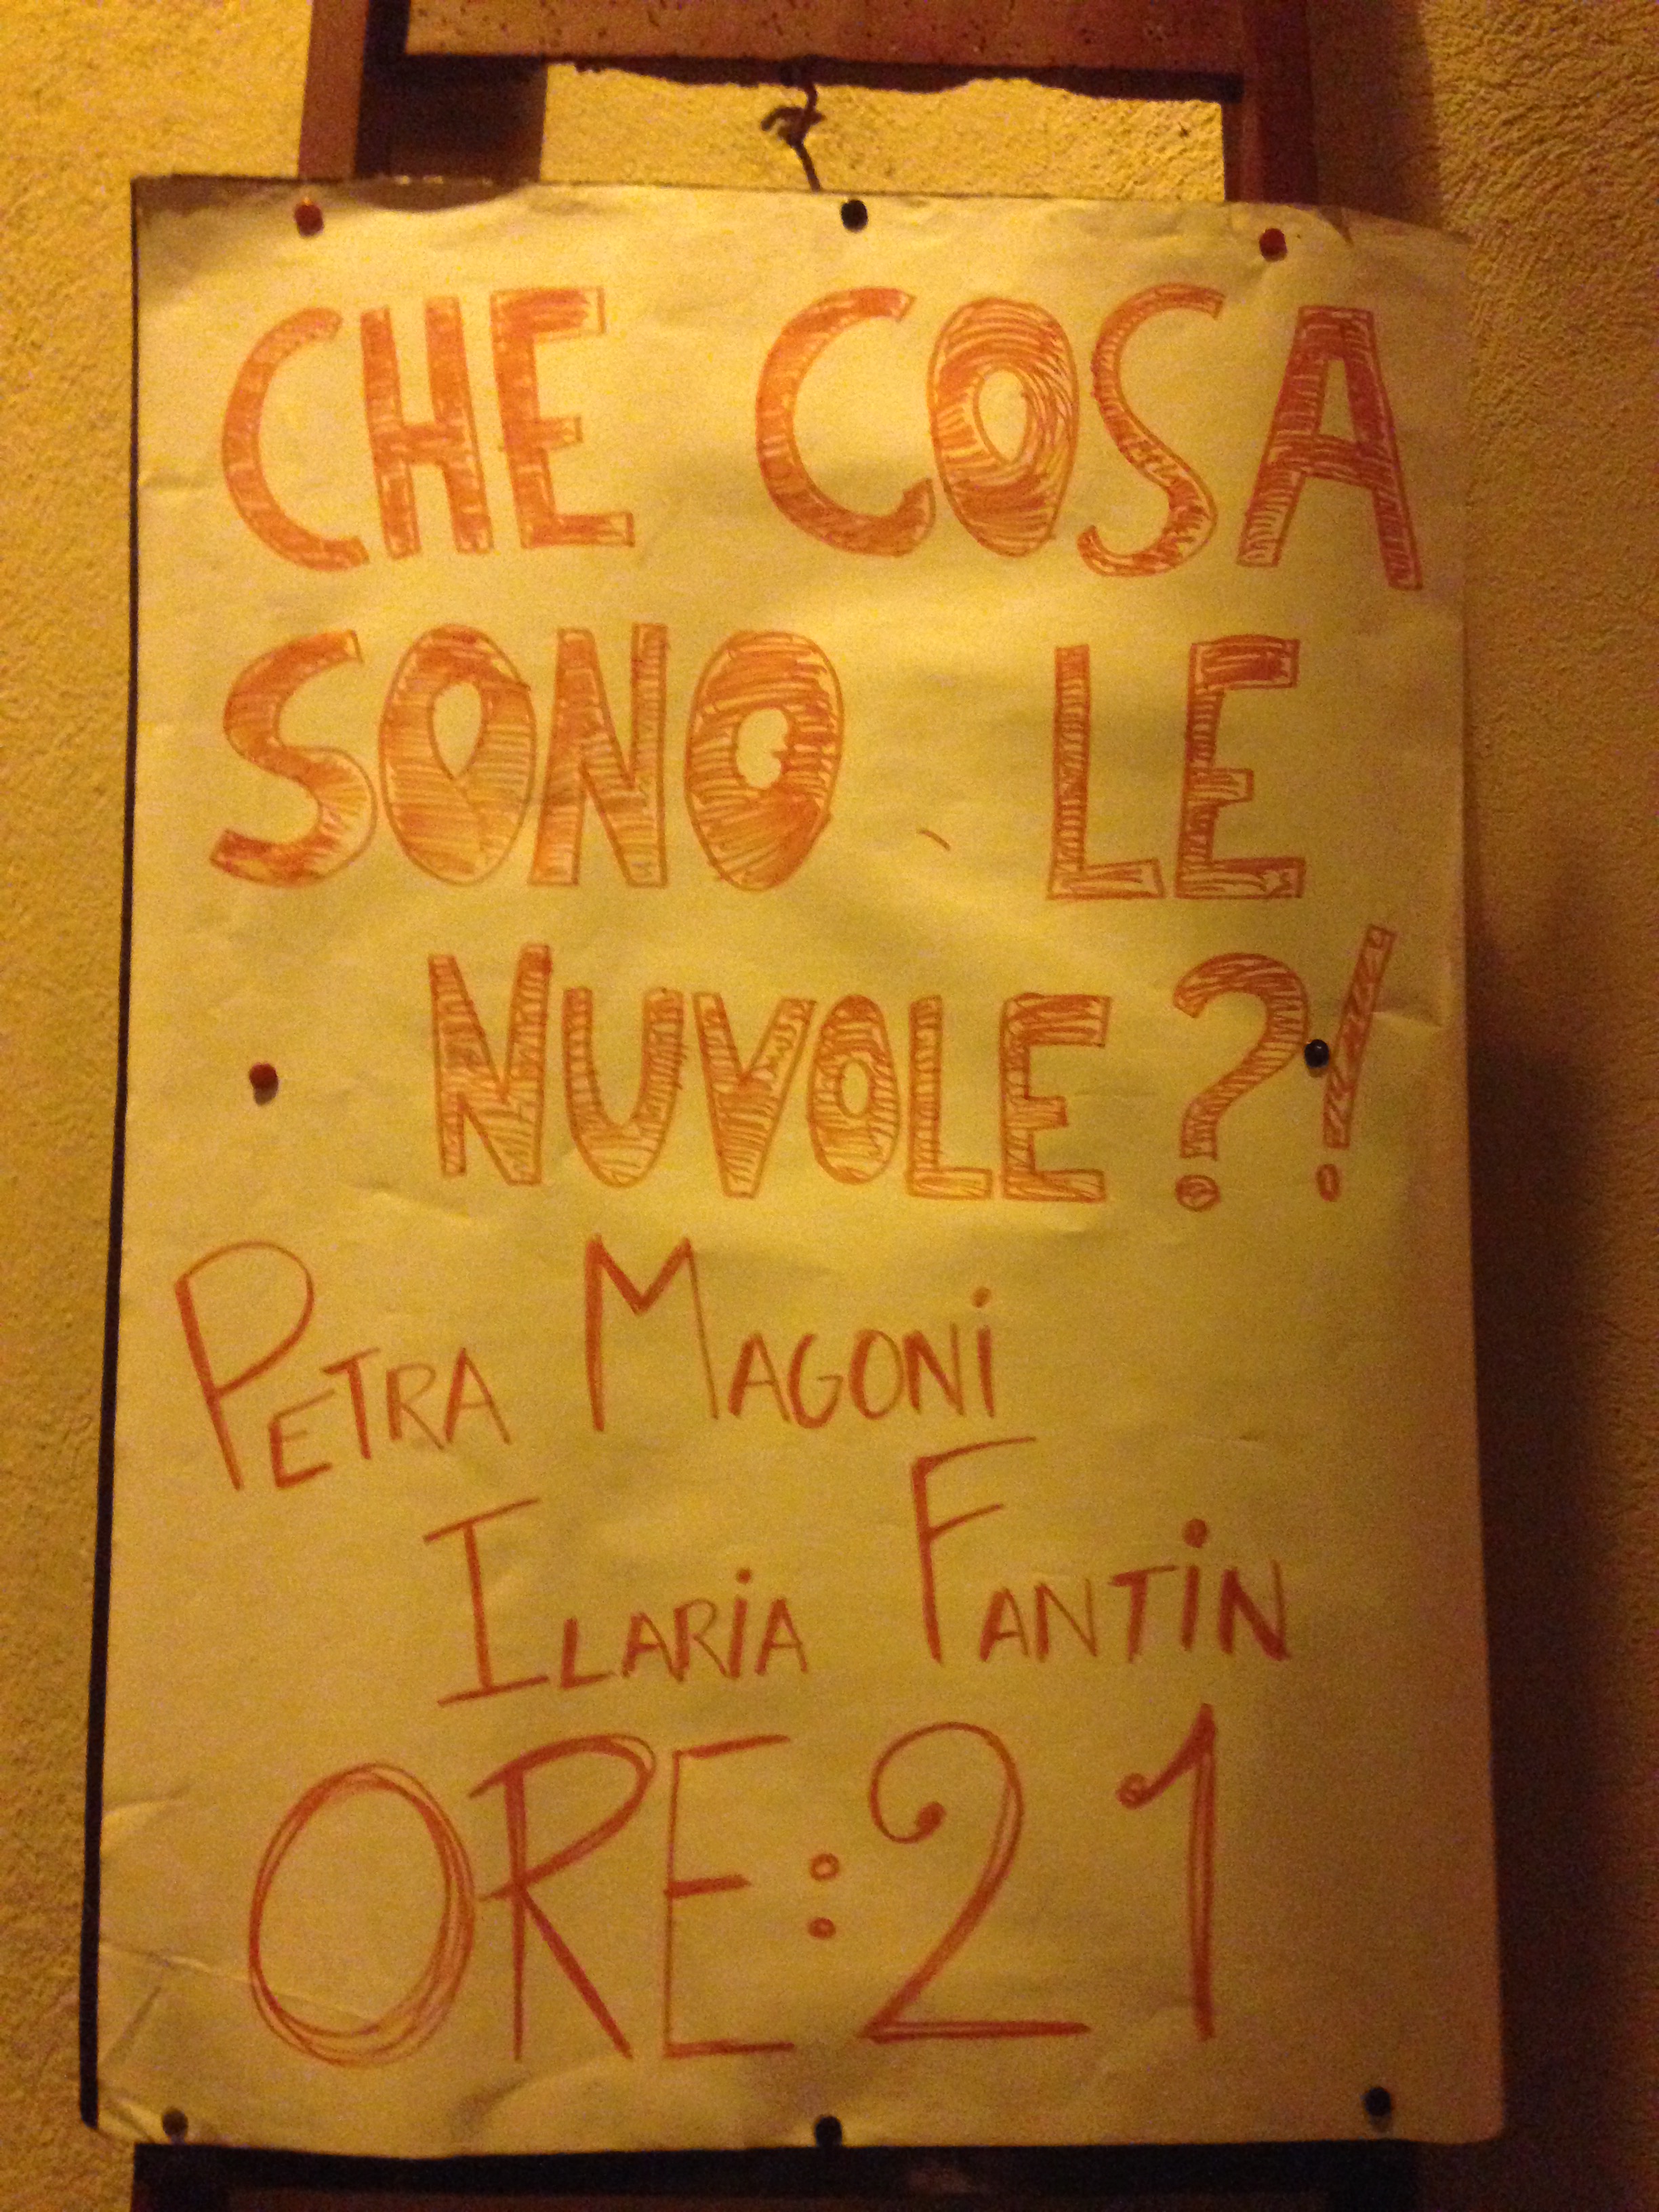 CHE COSA
SONO LE
NUVOLE?!
PETRA MAGONi
ILARiA FANTiN
ORE:21